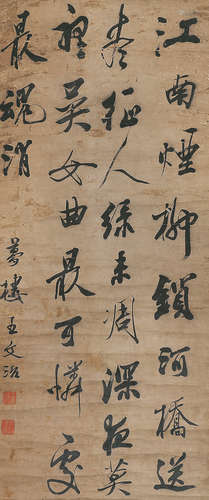 江南煙柳鎖河橋送
盡征人綠未凋深夜莫
聽吳女曲最可憐處
最魂消
夢樓王文治